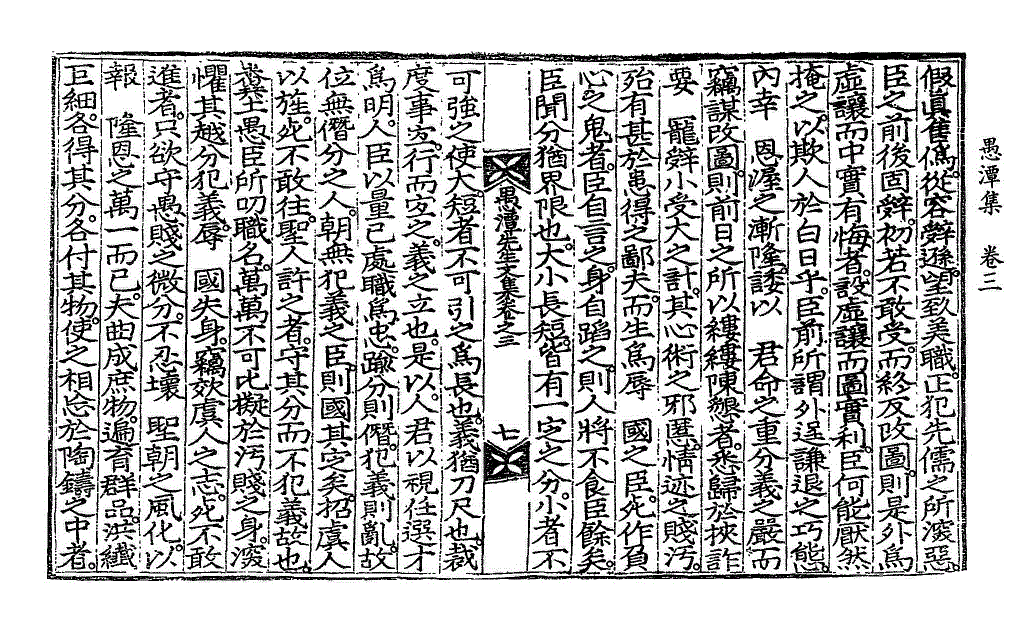 愚潭集　卷三
假眞售僞從容辭遜望致美職正犯先儒之所深惡
臣之前後固辭初若不敢受而終及改圖則是外爲
虛讓而中實有悔者設虛讓而圖實利臣何能厭然
掩之以欺人於白日乎臣前所謂外逞謙退之巧態
內幸　恩渥之漸隆諉以　君命之重分義之嚴而
竊謀改圖則前日之所以縷縷陳懇者悉歸於挾詐
要　寵辭小受大之計其心術之邪慝情迹之賤汚
殆有甚於患得之鄙夫而生爲辱　國之臣死作負
心之鬼者臣自言之身自蹈之則人將不食臣餘矣
臣聞分猶界限也大小長短皆有一定之分小者不
愚潭先生文集卷之三　七
可強之使大短者不可引之爲長也義猶刀尺也裁
度事宜行而宜之義之立也是以人君以視任選才
爲明人臣以量己處職爲忠踰分則僭犯義則亂故
位無僭分之人朝無犯義之臣則國其定矣招虞人
以旌死不敢往聖人許之者守其分而不犯義故也
糞土愚臣所叨職名萬萬不可比擬於汚賤之身深
懼其越分犯義辱　國失身竊效虞人之志死不敢
進者只欲守愚賤之微分不忍壞　聖朝之風化以
報　隆恩之萬一而已夫曲成庶物遍育群品洪纖
巨細各得其分各付其物使之相忘於陶鑄之中者